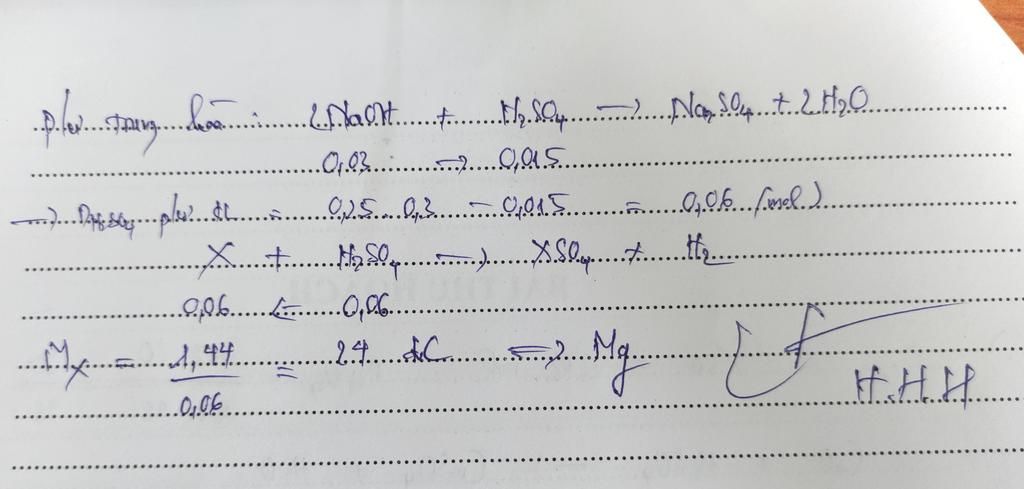 pứ trung hoà : 2NaOH + H₂SO₄ → Na₂SO₄ + 2H₂O
0,03 → 0,015
→ nH₂SO₄ pứ = 0,25 . 0,3 - 0,015 = 0,06 (mol)
X + H₂SO₄ → XSO₄ + H₂
0,06 ← 0,06
Mx = 1,44 / 0,06 = 24 đvC ⇔ Mg
H.H.H